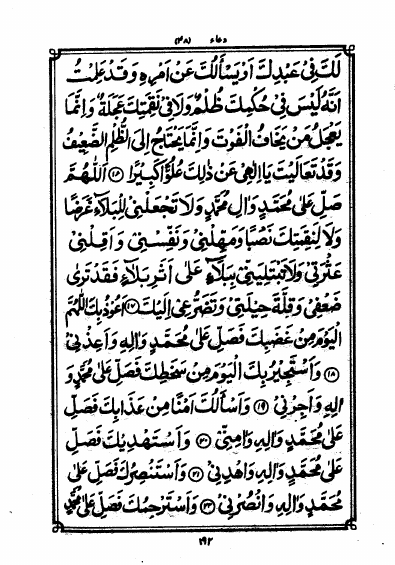 دعاء (۴۸)
لَكَ فِيْ عَبْدِكَ اَوْيَسْأَلُكَ عَنْ اَمْرِهِ وَقَدْ عَلِمْتُ
اَنَّهُ لَيْسَ فِيْ حُكْمِكَ ظُلْمٌ وَلَا فِيْ نَقِمَتِكَ عَجَلَةٌ وَاِنَّمَا
يَعْجَلُ مَنْ يَخَافُ الْفَوْتَ وَاِنَّمَا يَحْتَاجُ اِلَى الظُّلْمِ الضَّعِيْفُ
وَقَدْ تَعَالَيْتَ يَا اِلٰهِيْ عَنْ ذٰلِكَ عُلُوًّا كَبِيْرًا (۱۶) اَللّٰهُمَّ
صَلِّ عَلٰى مُحَمَّدٍ وَاٰلِ مُحَمَّدٍ وَلَا تَجْعَلْنِيْ لِلْبَلَاءِ غَرَضًا
وَلَا لِنَقِمَتِكَ نَصَبًا وَمَهِّلْنِيْ وَنَفِّسْنِيْ وَاَقِلْنِيْ
عَثْرَتِيْ وَلَا تَبْتَلِيَنِّيْ بِبَلَاءٍ عَلٰى اَثَرِ بَلَاءٍ فَقَدْ تَرٰى
ضَعْفِيْ وَقِلَّةَ حِيْلَتِيْ وَتَضَرُّعِيْ اِلَيْكَ (۱۷) اَعُوْذُ بِكَ اللّٰهُمَّ
الْيَوْمَ مِنْ غَضَبِكَ فَصَلِّ عَلٰى مُحَمَّدٍ وَاٰلِهِ وَاَعِذْنِيْ
(۱۸) وَاَسْتَجِيْرُ بِكَ الْيَوْمَ مِنْ سَخَطِكَ فَصَلِّ عَلٰى مُحَمَّدٍ وَ
اٰلِهِ وَاَجِرْنِيْ (۱۹) وَاَسْأَلُكَ اَمْنًا مِنْ عَذَابِكَ فَصَلِّ
عَلٰى مُحَمَّدٍ وَاٰلِهِ وَاٰمِنِّيْ (۲۰) وَاَسْتَهْدِيْكَ فَصَلِّ
عَلٰى مُحَمَّدٍ وَاٰلِهِ وَاهْدِنِيْ (۲۱) وَاَسْتَنْصِرُكَ فَصَلِّ عَلٰى
مُحَمَّدٍ وَاٰلِهِ وَانْصُرْنِيْ (۲۲) وَاَسْتَرْحِمُكَ فَصَلِّ عَلٰى مُحَمَّدٍ
۱۹۲